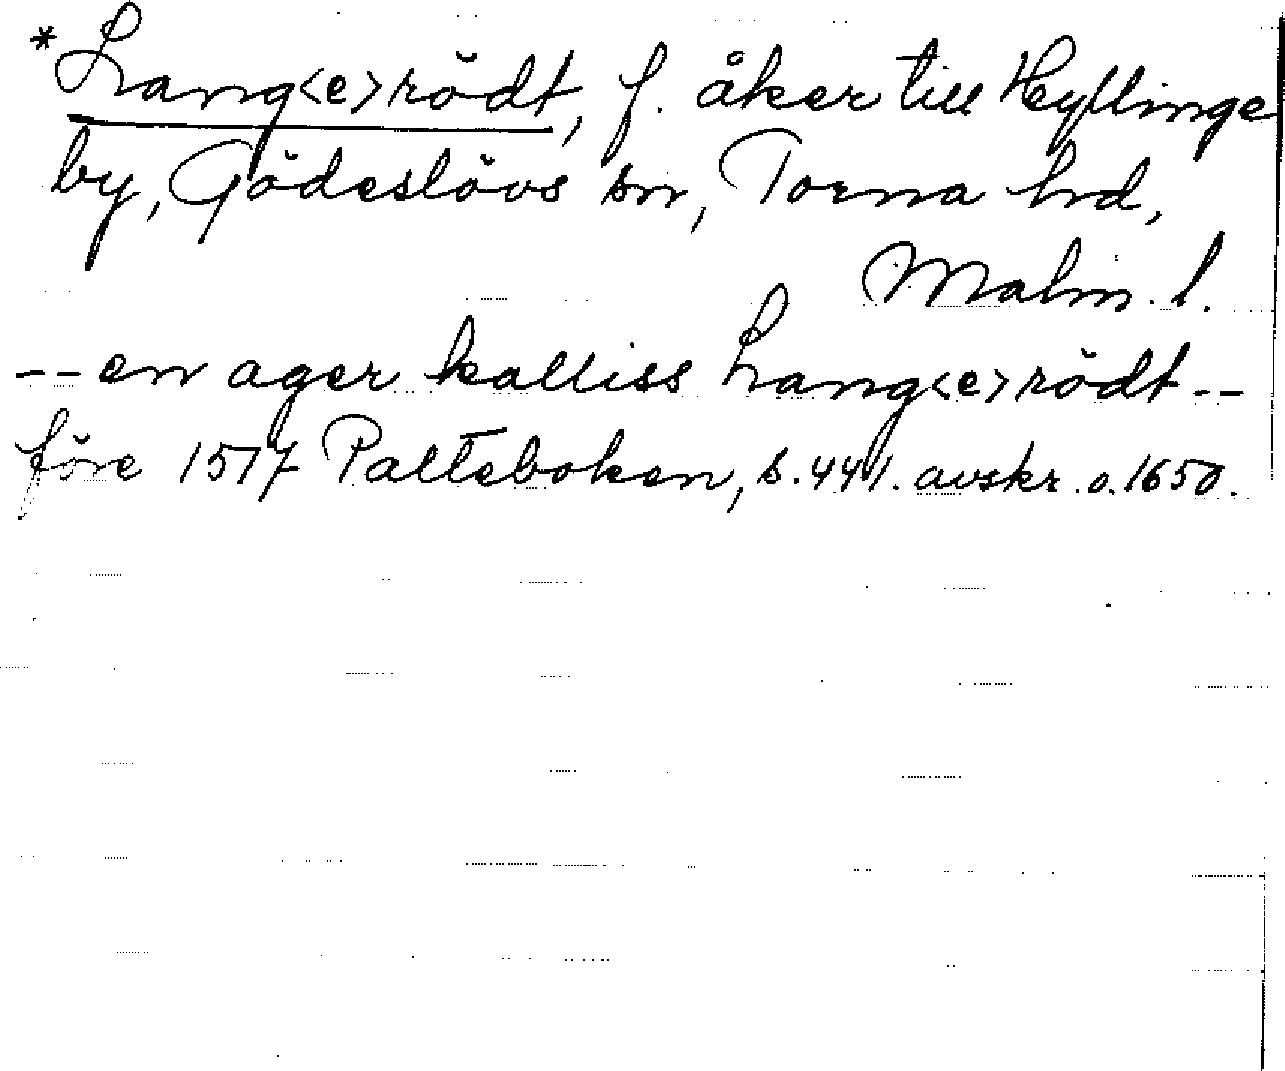 *Lang<e>rödt, f. åker till Hyllinge
by, Gödeslövs sn, Torna hd,
Malm. l.
-- en ager kalliss Lang<e>rödt --
före 1517 Palteboken, s. 441. avskr. o. 1650.